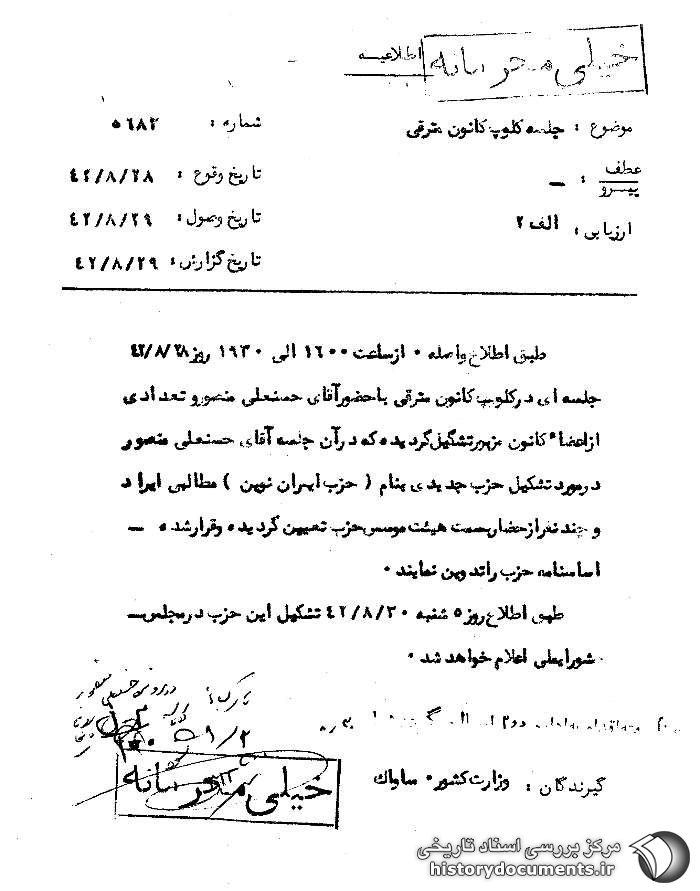 خیلی محرمانه
اطلاعیه
موضوع : جلسه کلوپ کانون مترقی
شماره : ٥٦٨٢
عطف
پیرو : ـ
تاریخ وقوع : ٤٢/٨/٢٨
ارزیابی : الف ٢
تاریخ وصول : ٤٢/٨/٢٩
تاریخ گزارش : ٤٢/٨/٢٩
طبق اطلاع واصله ٠ از ساعت ١٦٠٠ الی ١٩٣٠ روز ٤٢/٨/٢٨
جلسه ای در کلوپ کانون مترقی با حضور آقای حسنعلی منصور و تعدادی
از اعضاء کانون مزبور تشگیل گردیده که در آن جلسه آقای حسنعلی منصور
در مورد تشکیل حزب جدیدی بنام ( حزب ایران نوین ) مطالبی ایراد
و چند نفر از حضار بسمت هیئت موسس حزب تعیین گردیده و قرار شده ـ
اساسنامه حزب را تدوین نمایند ٠
طبق اطلاع روز ٥ شنبه ٤٢/٨/٣٠ تشکیل این حزب در مجلس ـ
شورایملی اعلام خواهد شد ٠
گیرندگان : وزارت کشور ٠ ساواک
خیلی محرمانه
مرکز بررسی اسناد تاریخی
historydocuments.ir